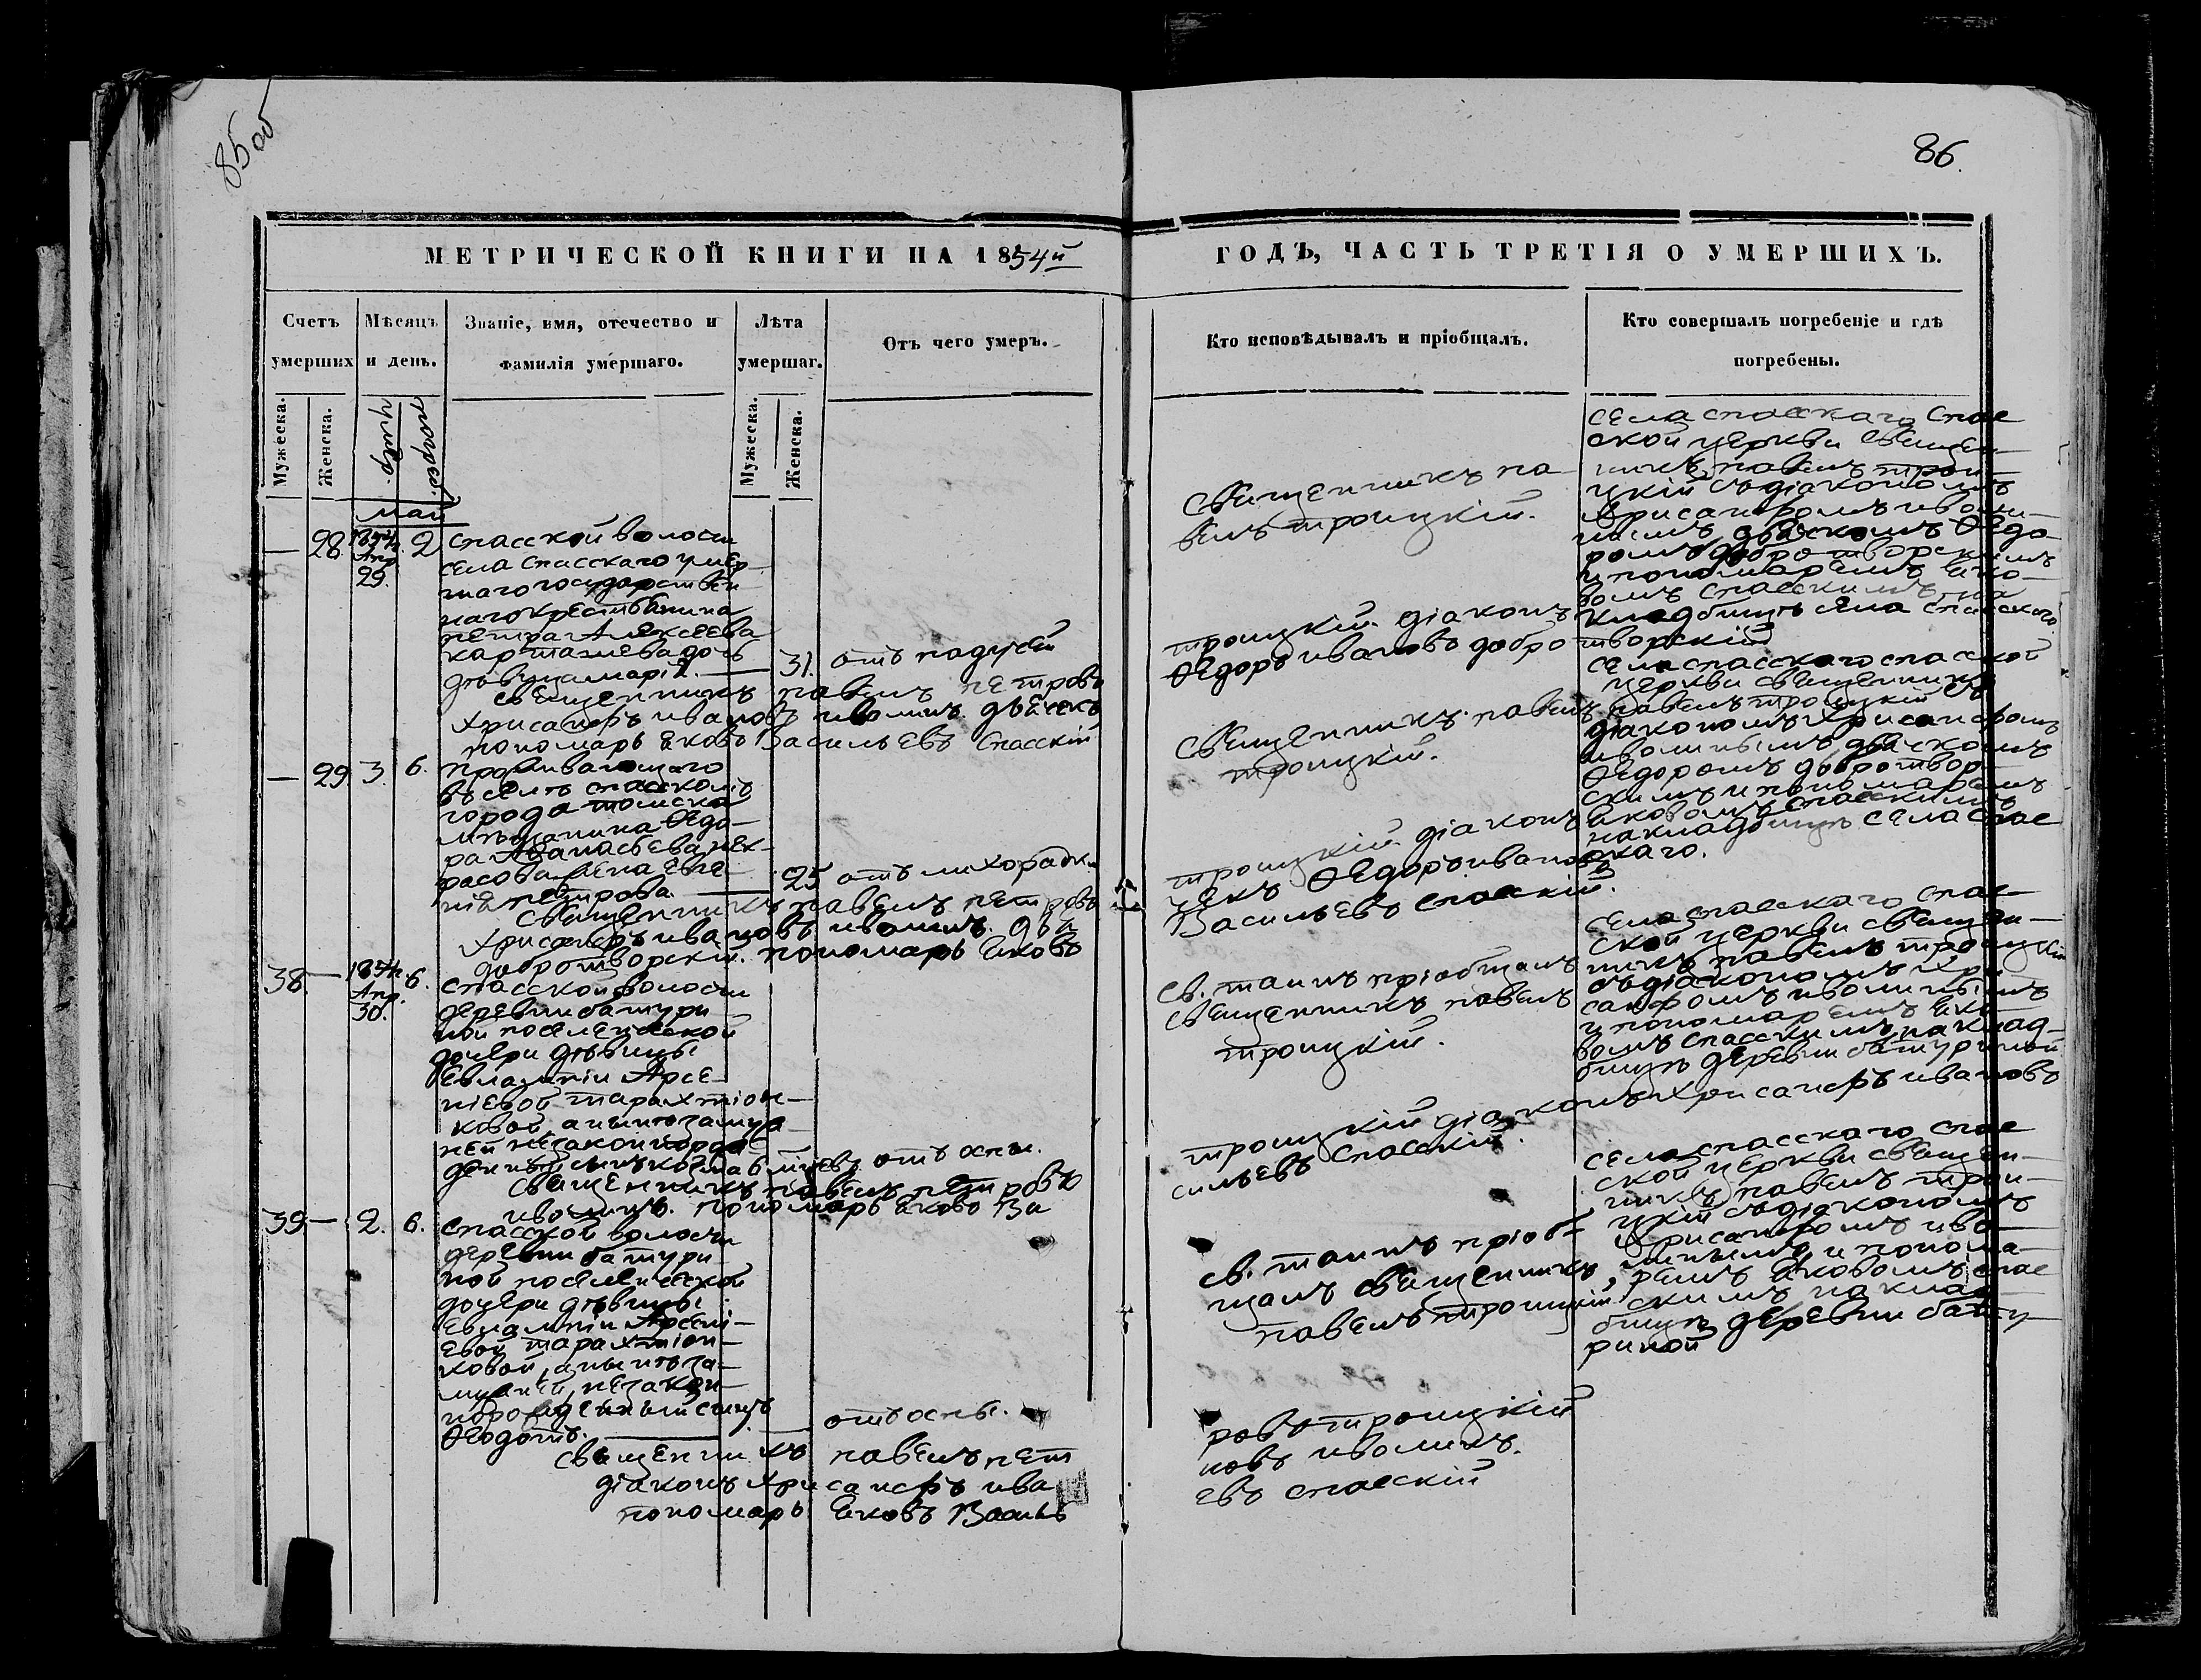 85 об
86.
МЕТРИЧЕСКОЙ КНИГИ НА 1854й
ГОДЪ, ЧАСТЬ ТРЕТІЯ О УМЕРШИХЪ.
Счетъ умерших
Мѣсяцъ и день.
Званіе, имя, отечество и фамилія умершаго.
Лѣта умершаг.
Отъ чего умеръ.
Кто исповѣдывалъ и пріобщалъ.
Кто совершалъ погребеніе и гдѣ погребены.
Мужеска.
Женска.
умер.
погреб.
Мужеска.
Женска.
май
— 28. 1854. Апр. 29. 2
спасской волости
села спасскаго умер-
шаго государствен
наго крестьянина
петра Алексеева
карташева дочь
дѣвица марія. — 31. отъ
священникъ павелъ петровъ
хрисанфъ ивановъ иволинъ. дьячекъ
пономарь Яковъ Васильевъ Спасскій
Священникъ па-
велъ троицкій.
троицкій. діаконъ
Ѳедоръ ивановъ добротворскій
села спасскаго спас
ской церкви священ-
никъ павелъ трои-
цкій съ діакономъ
Хрисанфомъ иволи-
нымъ дьячкомъ Ѳедо-
ромъ добротворскимъ
и пономаремъ Яко-
вомъ спасскимъ на
кладбищѣ села спасскаго.
— 29 3. 6.
проживающаго
въ селѣ спасскомъ
города томска
мѣщанина Ѳедо-
ра Афанасьева нек-
расова жена Евге-
нія петрова — 25 отъ лихорадки
священникъ павелъ петровъ
хрисанфъ ивановъ иволинъ. дья
добротворскій. пономарь Яковъ
Священникъ павелъ
троицкій.
троицкій. діаконъ
чекъ Ѳедоръ ивановъ
Васильевъ спасскій.
села спасскаго спасской
церкви священникъ
павелъ троицкій съ
діакономъ Хрисанфомъ
иволинымъ дьячкомъ
Ѳедоромъ добротвор-
скимъ и пономаремъ
Яковомъ спасскимъ
на кладбищѣ села спас
скаго.
38. — 1854. Апр. 30. 6.
спасской волости
деревни батури
ной поселенческой
дочери дѣвицы
Евлампіи Арсе-
ніевой тарахтіон-
ковой, а нынѣ замуж-
ней незаконнорож
денный сынъ отъ оспы.
священникъ павелъ петровъ
иволинъ. пономарь Яковъ Ва
св. таинъ пріобщалъ
священникъ павелъ
троицкій.
троицкій діаконъ Хрисанфъ ивановъ
сильевъ спасскій.
села спасскаго спас
ской церкви священ-
никъ павелъ троицкій
съ діакономъ Хри
санфомъ иволинымъ
и пономаремъ Яко-
вомъ спасскимъ на клад-
бищѣ деревни батуриной
39 — 2. 6.
спасской волости
деревни батури
ной поселенческой
дочери дѣвицы
Евлампіи Арсені-
евой тарахтіон-
ковой, а нынѣ за-
мужней, незакон-
норожденный сынъ
Ѳедотъ. — отъ оспы.
священникъ павелъ пет
діаконъ хрисанфъ ива
пономарь Яковъ Василь
св. таинъ пріоб-
щалъ священникъ
павелъ троицкій
ровъ троицкій
новъ иволинъ.
евъ спасскій
села спасскаго спас
ской церкви священ-
никъ павелъ трои-
цкій съ діакономъ
Хрисанфомъ иво-
линымъ и понома-
ремъ Яковомъ спас
скимъ на клад-
бищѣ деревни бату-
риной